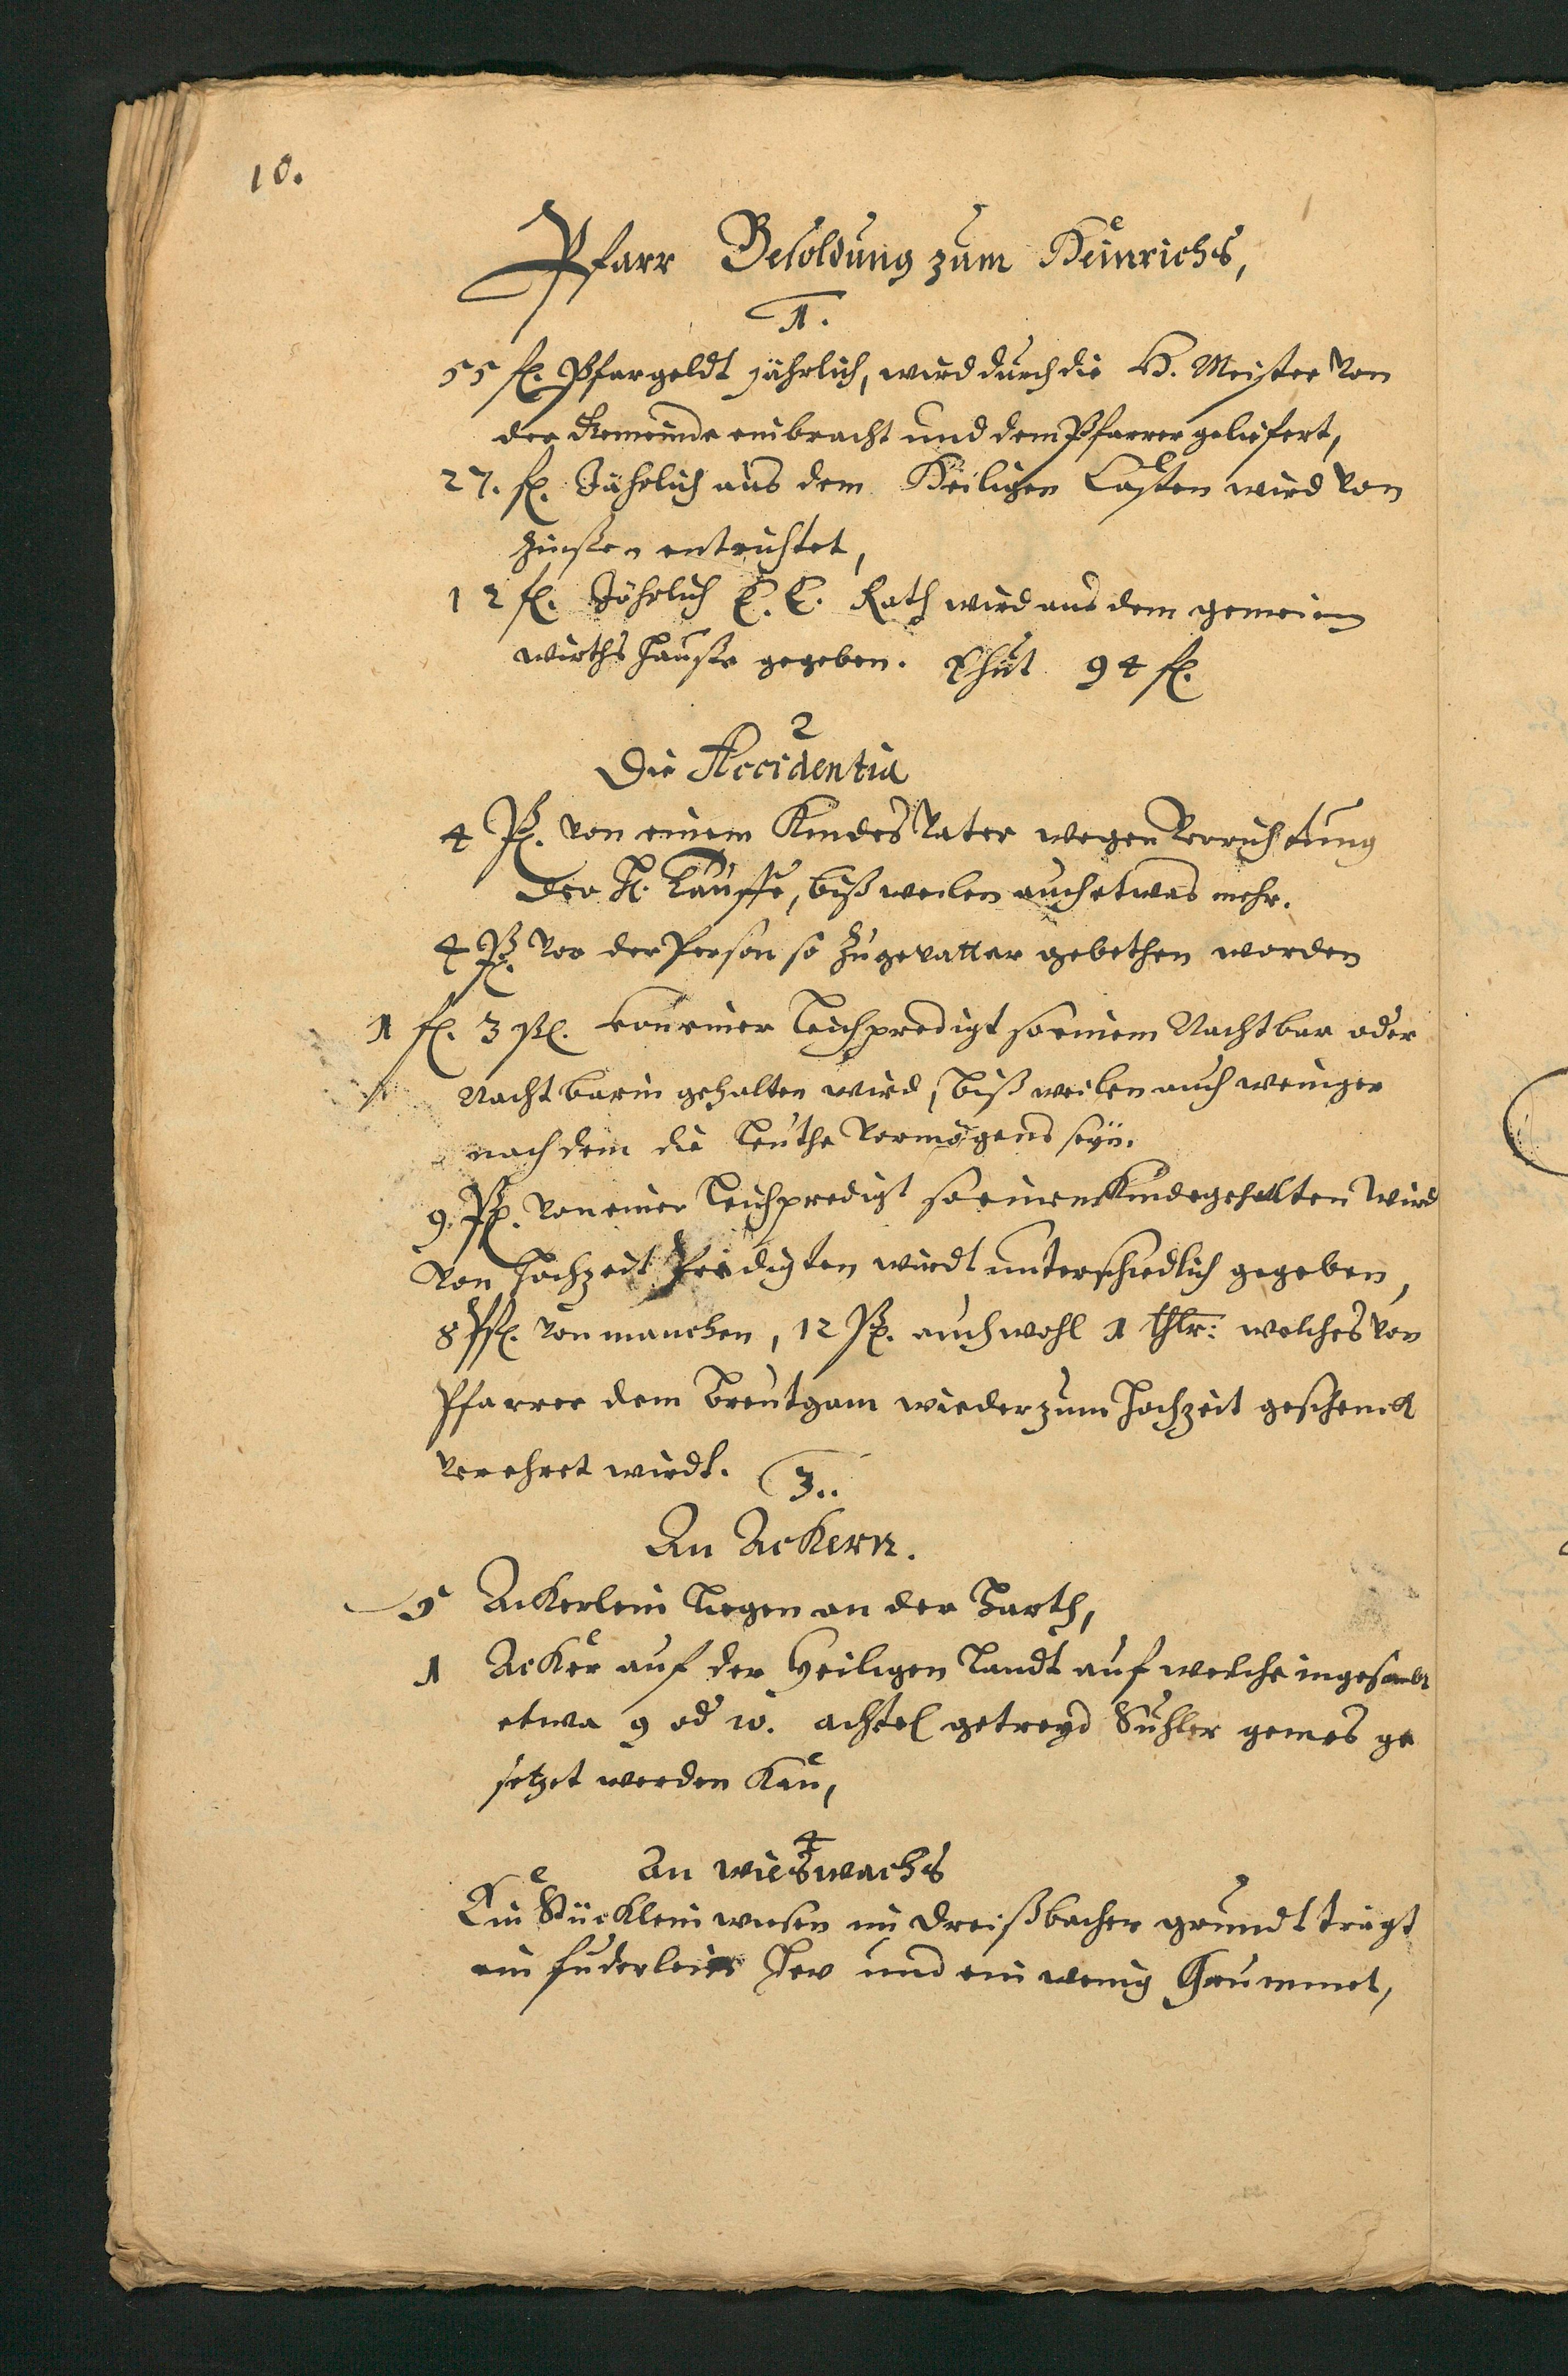 10.
Pfarr Besoldung zum Heinrichs,
1.
55 fl. Pfargeldt jährlich, wird durch die H. Meister von
der Gemeinde einbracht und dem Pfarrer geliefert,
27. fl. Jährlich aus dem Heiligen Casten wird von
Zinßen entrichtet,
12 fl. Jährlich E. E. Rath wird aus dem gemeinen
wirths Hauße gegeben. Thut 94 fl.
2
Die Accidentia
4 ßl. von einem Kindes Vater wegen Verrichtung
der H. Tauffe, bißweilen auch etwas mehr.
4 ßl. von der Person so zu gevatter gebethen worden
1 fl. 3 ßl. von einer Leichpredigt so einem Nachtbar oder
Nachtbarin gehalten wird, bißweilen auch weniger
nach dem die Leuthe Vermögens seyn.
9. ßl. von einer Leichpredigt so einem Kinde gehalten wird
Von Hochzeit Predigten wirdt unterschiedlich gegeben,
8 ßl. von manchen, 12 ßl. auch wohl 1 thlr: welches von
Pfarrer dem Breutgam wieder zum Hochzeit geschenck
verehret wirdt.
3..
An Ackern.
5 Ackerlein liegen an der Harth,
1 Acker auf der Heiligen Landt auf welche ingesambt
etwa 9 od 10. achtel getreyd Suhler gemes ge
setzet werden kan,
4
An wieswachs
Ein Stücklein wiesen im Dreißbacher grundt trägt
ein fuderlein Hew und ein wenig Grummet,